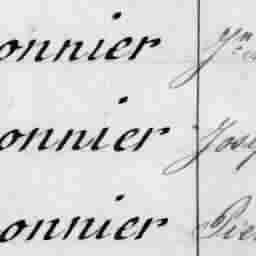 onnier
onnier Jose
onnier Pie